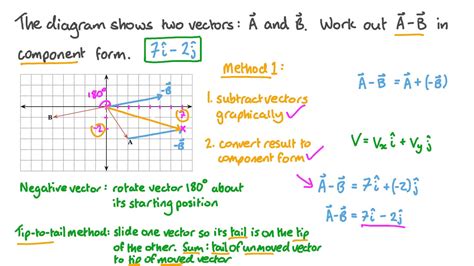 The diagram shows two vectors: A⃗ and B⃗. Work out A⃗-B⃗ in
component form. 7î - 2ĵ
Method 1:
1. subtract vectors
graphically ✓
2. convert result to
component form ✓
180°
-B⃗
7
B
-2
A
-B⃗
A⃗ - B⃗ = A⃗ + (-B⃗)
V⃗ = Vₓ î + Vᵧ ĵ
A⃗ - B⃗ = 7î + (-2)ĵ
A⃗ - B⃗ = 7î - 2ĵ
Negative vector: rotate vector 180° about
its starting position
Tip-to-tail method: slide one vector so its tail is on the tip
of the other. Sum: tail of unmoved vector
to tip of moved vector